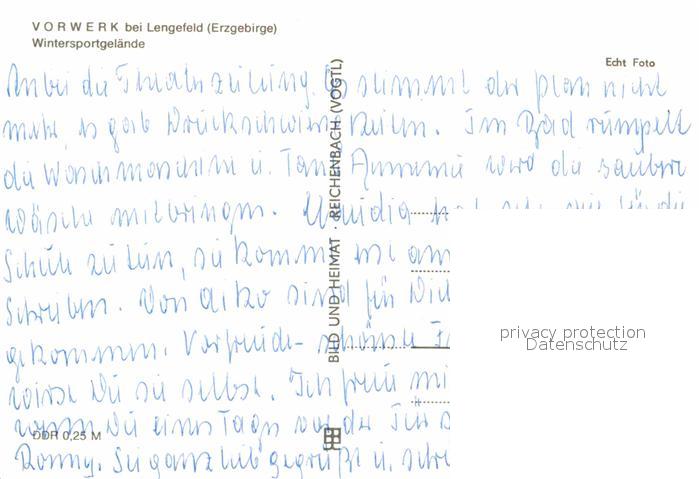 VORWERK bei Lengefeld (Erzgebirge)
Wintersportgelände
Echt Foto
Anbei die Theaterzeitung. Es stimmt der Plan nicht
mehr, es gab Druckschwierigkeiten. Im Bad rumpelt
die Waschmaschine u. Tante Annemie wird die saubere
Wäsche mitbringen. hat für die
Schule zu tun, sie kommt erst am
Schreiben. Von sind für Dich
gekommen. Vorfreude - schönste
wirst Du sie selbst. Ich freue mi
wenn Du eines Tages vor der Tür s
Ronny. Sei ganz lieb gegrüßt u.
BILD UND HEIMAT · REICHENBACH (VOGTL)
DDR 0,25 M
privacy protection
Datenschutz